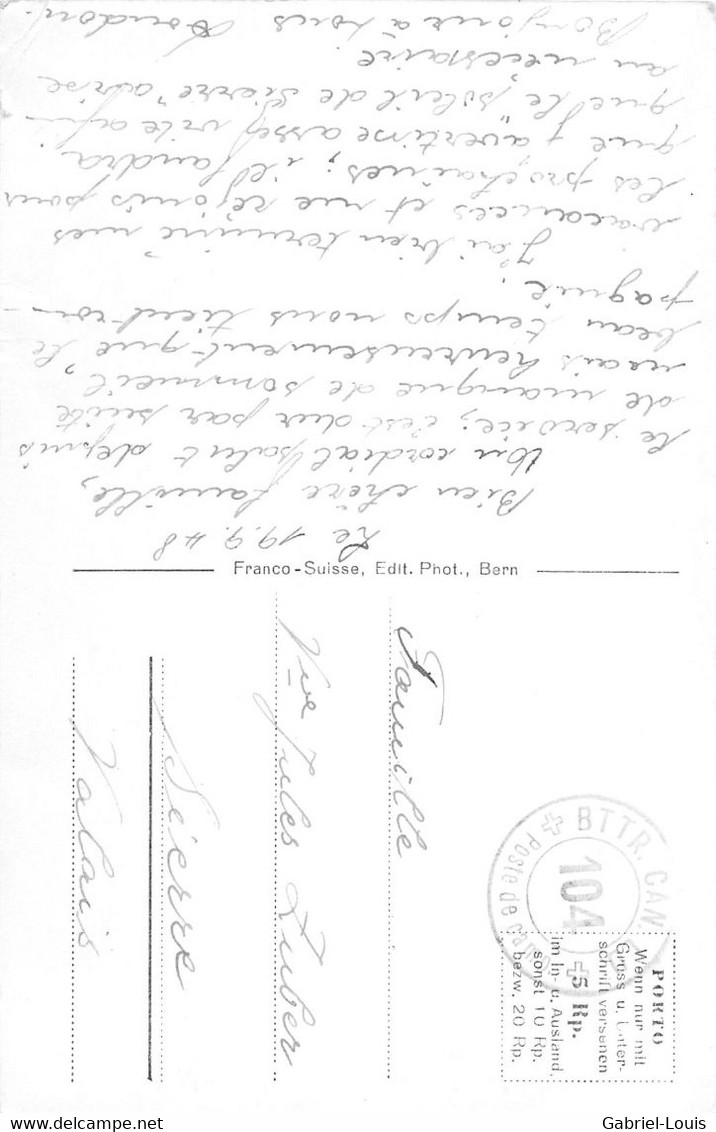 Le 19.9.48
Bien chère famille,
Un cordial salut depuis
le service; c'est dur par suite
de manque de sommeil,
mais heureusement que le
beau temps nous tient com-
pagnie.
J'ai bien terminé mes
vacances et me réjouis pour
les prochaines; il faudra
que j'avertisse assez vite afin
que le "soleil de Sierre"
au nécessaire
Bonjour à tous
Franco-Suisse, Edit. Phot., Bern
Famille
Vve Jules Zuber
Sierre
Valais
BTTR. CAN.
104
Poste de camp.
PORTO
Wenn nur mit
Gruss u. Unter-
schrift versehen
5 Rp.
im In- u. Ausland,
sonst 10 Rp.
bezw. 20 Rp.
Gabriel-Louis